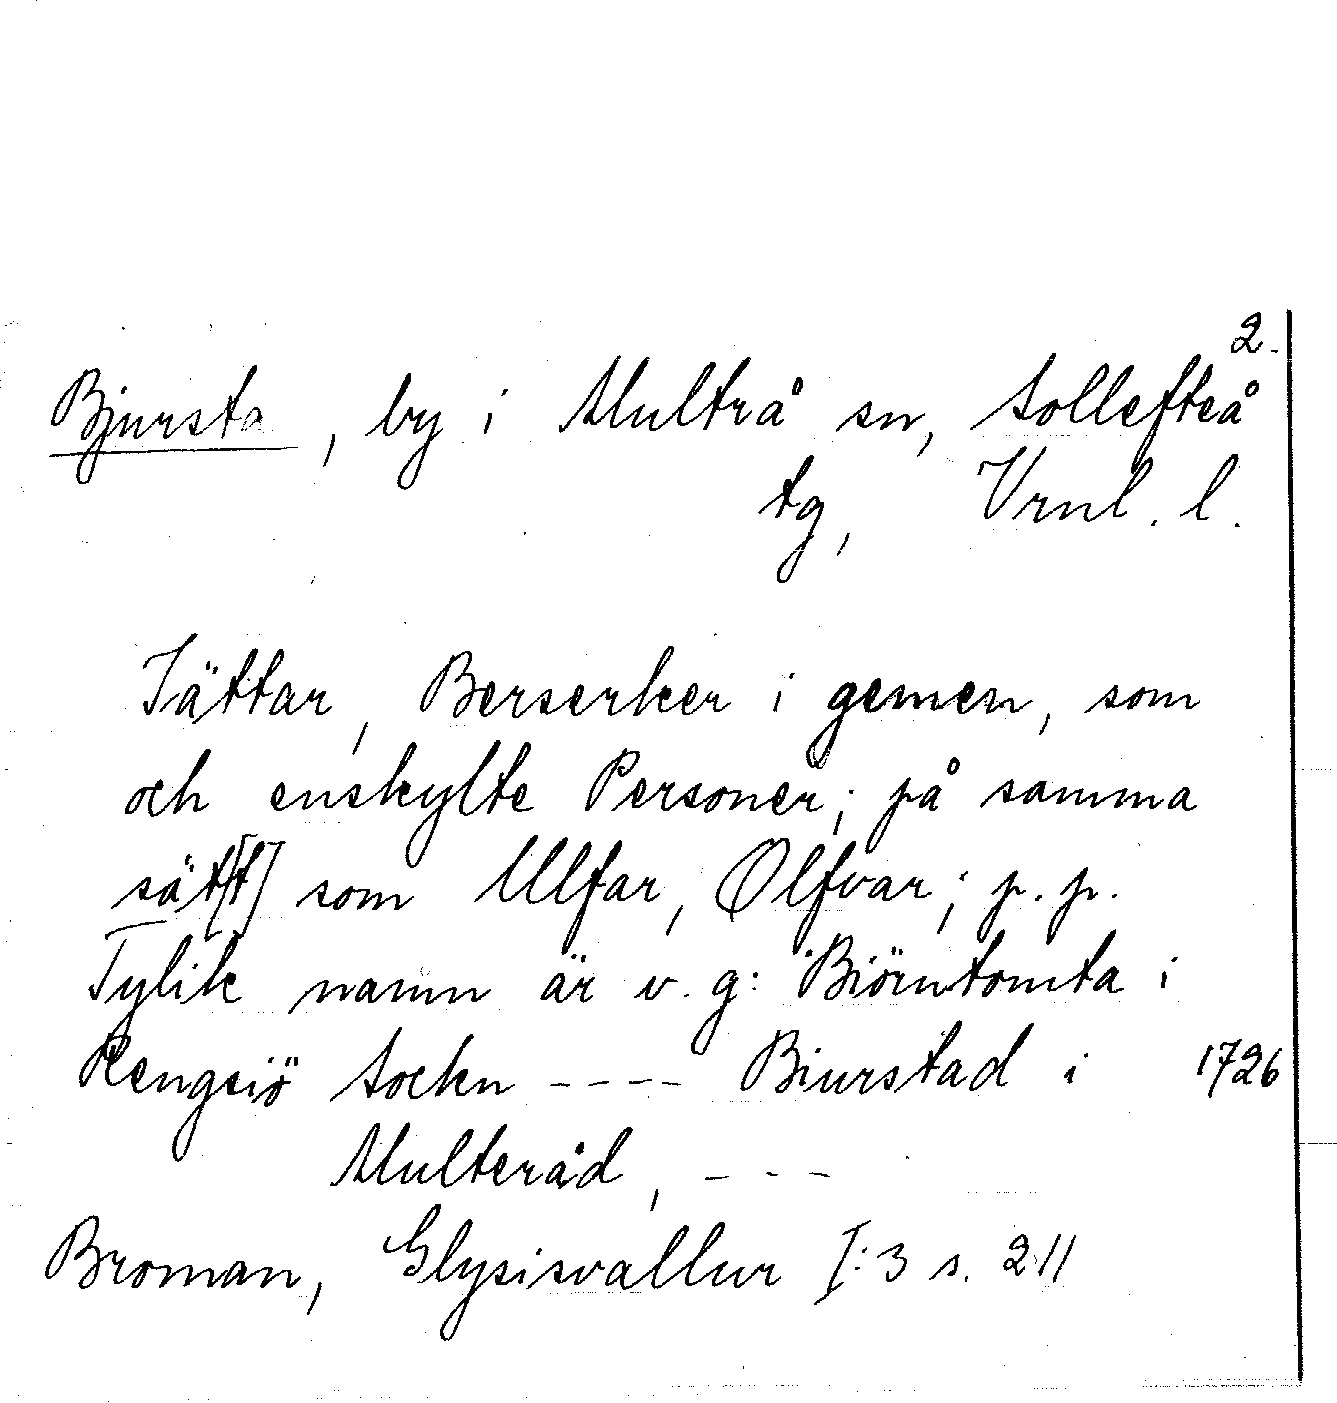 2.
Bjursta, by i Multrå sn, Sollefteå
tg, Vrnl. l.
Jättar, Berserker i gemen, som
och enskylte Personer; på samma
sät[t] som Ulfar, Olfvar; p. p.
Tylik namn är v. g: Biörntomta i
Rengsiö Sockn ---- Biurstad i 1726
Multeråd, ---
Broman, Glysisvallur I:3 s. 211